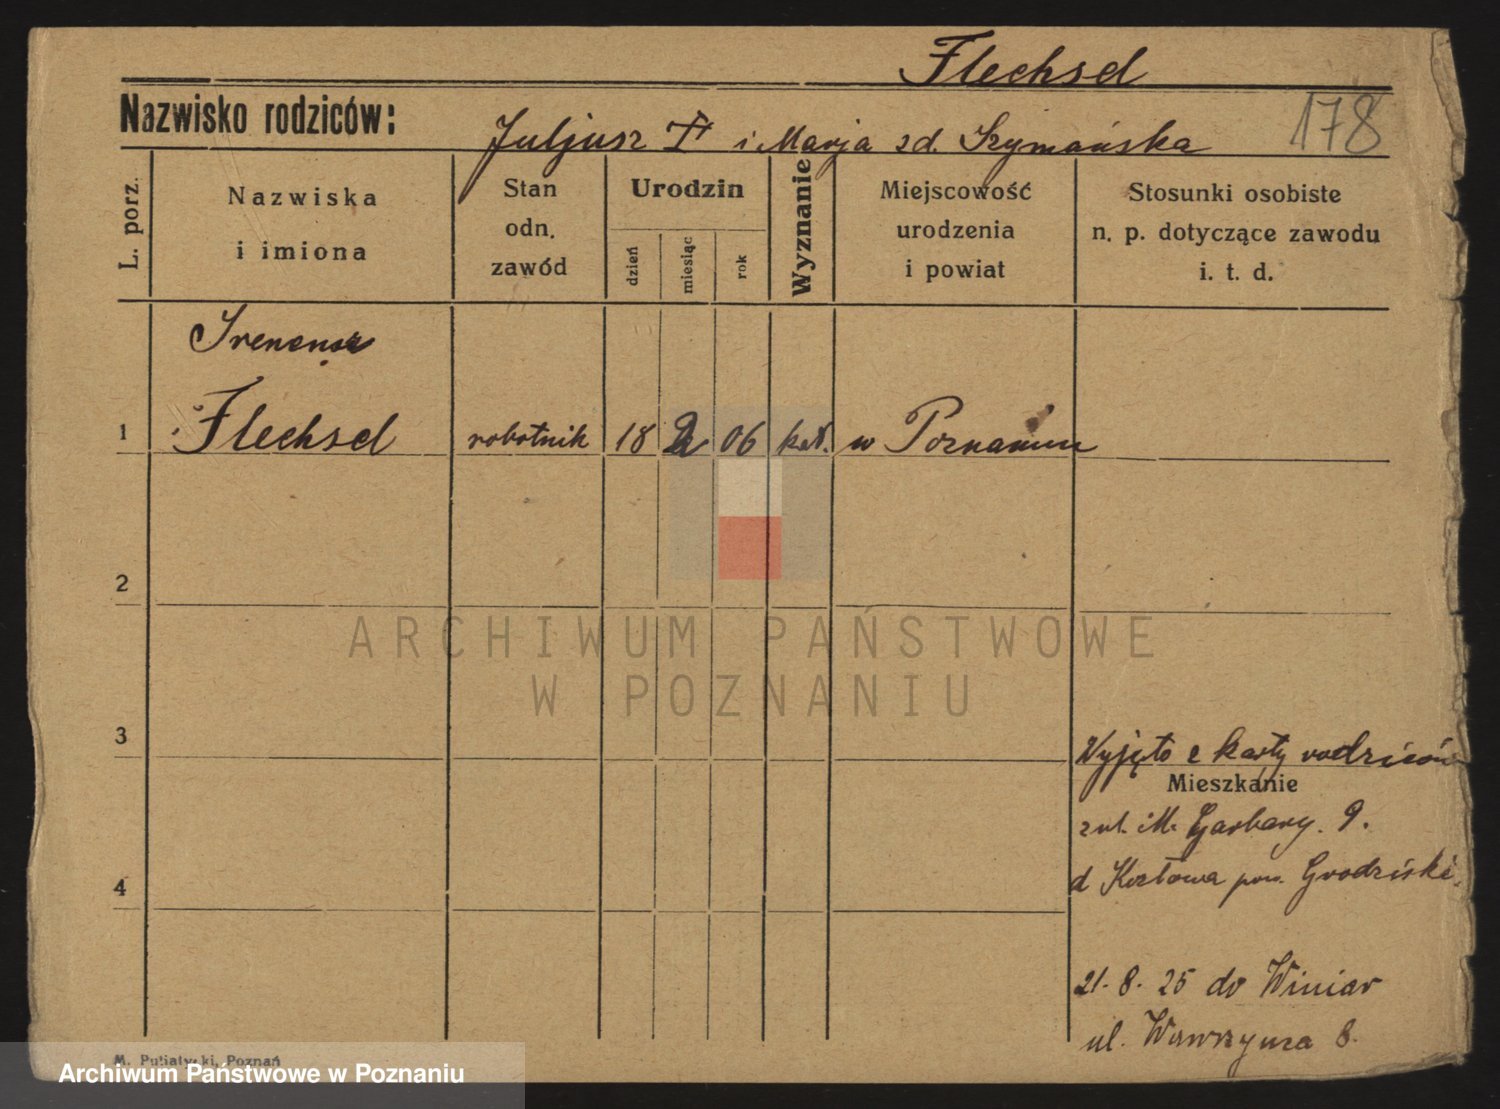 Flechsel
Nazwisko rodziców:
Juljusz i Marja zd. Szymańska
178
L. porz.
Nazwiska
i imiona
Stan
odn.
zawód
Urodzin
dzień
miesiąc
rok
Wyznanie
Miejscowość
urodzenia
i powiat
Stosunki osobiste
n. p. dotyczące zawodu
i. t. d.
Ireneusz
1 Flechsel robotnik 18 2 06 kat. w Poznaniu
2
ARCHIWUM PAŃSTWOWE
W POZNANIU
3
Wyjęto z karty rodziców
Mieszkanie
M. Garbary. 9.
4
d Kozłowa pow. Grodziski.
21. 8. 25 do Winiar
ul. Wawrzyńca 8.
M. Putiatycki, Poznań
Archiwum Państwowe w Poznaniu